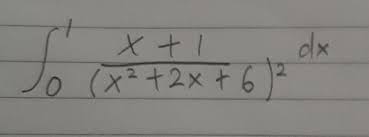 ∫₀¹ (x + 1)/(x² + 2x + 6)² dx